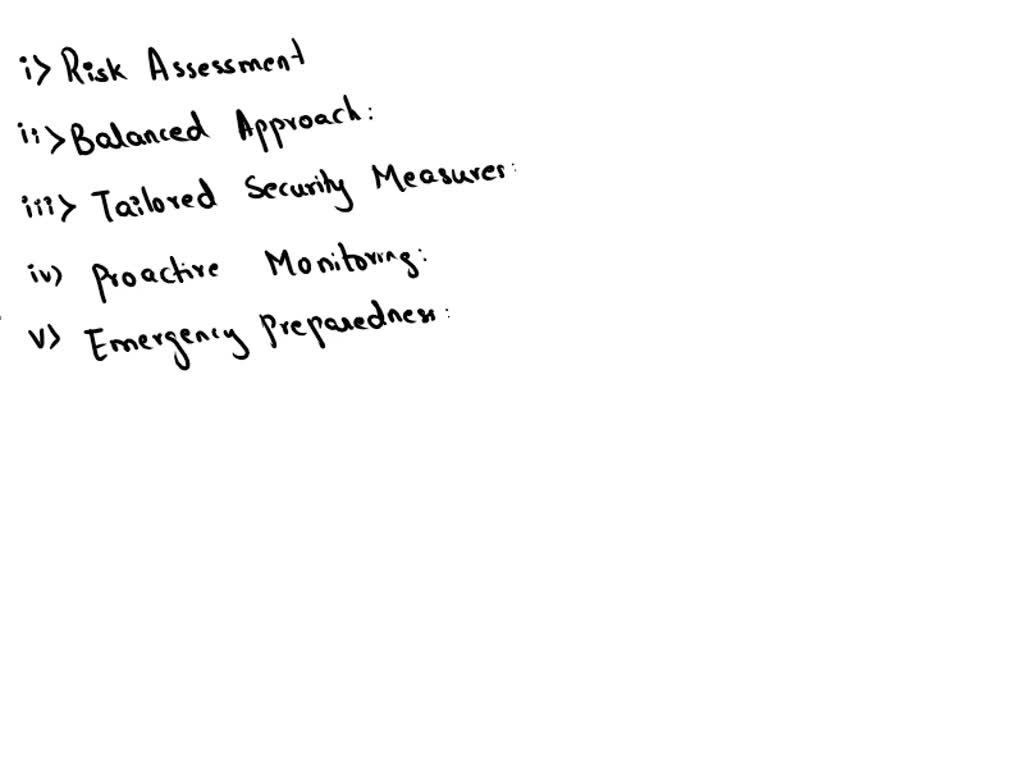 i> Risk Assessment
ii> Balanced Approach:
iii> Tailored Security Measures:
iv) Proactive Monitoring:
v) Emergency Preparedness: